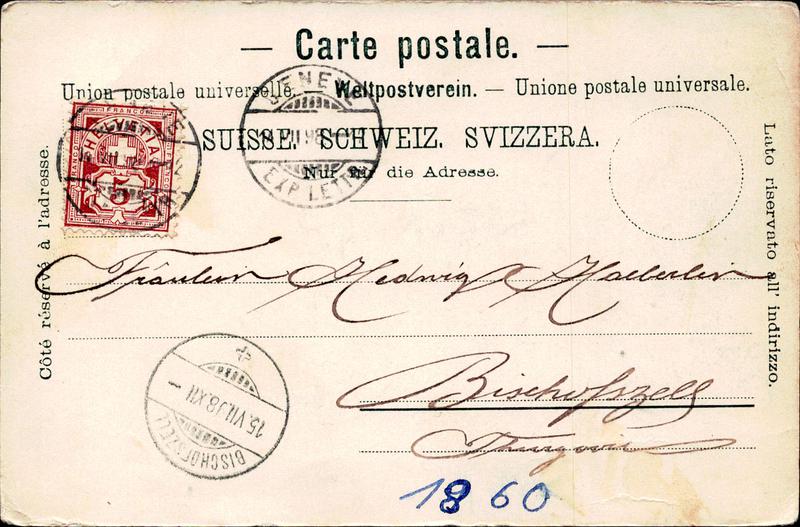 — Carte postale. —
Union postale universelle. — Weltpostverein. — Unione postale universale.
SUISSE. SCHWEIZ. SVIZZERA.
Nur für die Adresse.
Côté réservé à l'adresse.
Lato riservato all' indirizzo.
FRANCO
HELVETIA
5
GENEVE
EXP. LETTR
Fräulein Hedwig Haeberlin
Bischofszell
Thurgovie
15.VII.98.XII —
BISCHOFSZELL
1860